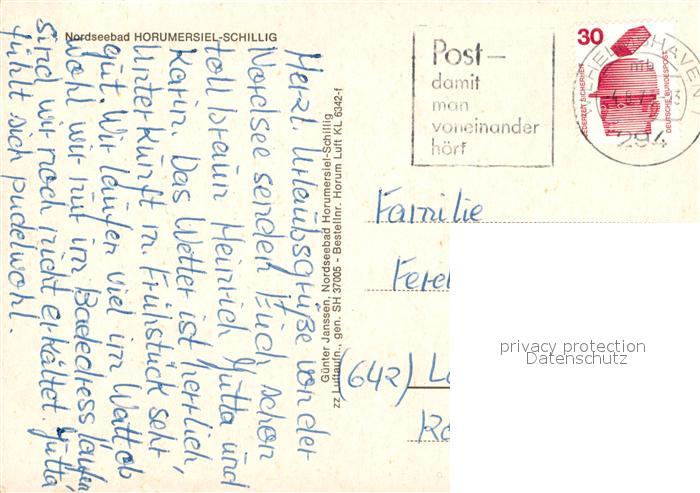 Nordseebad HORUMERSIEL-SCHILLIG
Herzl. Urlaubsgrüße von der
Nordsee senden Euch schon
Heinrich, Jutta und
Karin. Das Wetter ist herrlich,
Unterkunft m. Frühstück sehr
gut. Wir laufen viel im Watt ob
wohl wir nur im Badedress laufen
sind wir noch nicht erkältet. Jutta
fühlt sich pudelwohl.
Günter Janssen, Nordseebad Horumersiel-Schillig
zz Luftaufn., gen. SH 37005 - Bestellnr. Horum Luft KL 6342-f
Post –
damit
man
voneinander
hört
30
JEDERZEIT SICHERHEIT
DEUTSCHE BUNDESPOST
WILHELMSHAVEN
mb
294
Familie
(642)
privacy protection
Datenschutz